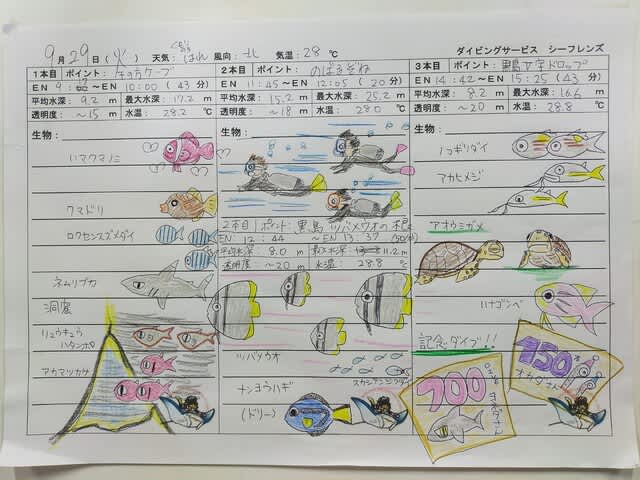 ダイビングサービス シーフレンズ
9月29日(火) 天気:はれ 風向:北 気温:28℃
1本目 ポイント:
EN 9: ~EN 10:00 (43分)
平均水深:9.2 m 最大水深:17.2 m
透明度:~15 m 水温:28.2 ℃
生物:
ハマクマノミ
クマドリ
ロクセンスズメダイ
ネムリブカ
洞窟
リュウキュウ
ハタンポ
アカマツカサ
2本目 ポイント:のばるぞね
EN 11:45 ~EN 12:05 (20分)
平均水深:15.2 m 最大水深:25.2 m
透明度:~18 m 水温:28.0 ℃
生物:
2本目 ポイント:黒島 ツバメウオの根
EN 12:44 ~EN 13:37
平均水深:8.0 m 最大水深 11.2m
透明度:~20m 水温:28.8℃
ツバメウオ
スカシテンジクダイ
ナンヨウハギ
(ドリー)
3本目 ポイント:黒島 ドロップ
EN 14:42 ~EN 15:25 (43分)
平均水深:8.2 m 最大水深:16.6 m
透明度:~20 m 水温:28.8 ℃
生物:
ノコギリダイ
アカヒメジ
アオウミガメ
ハナゴンベ
記念ダイブ!!
700
750
オカダさん